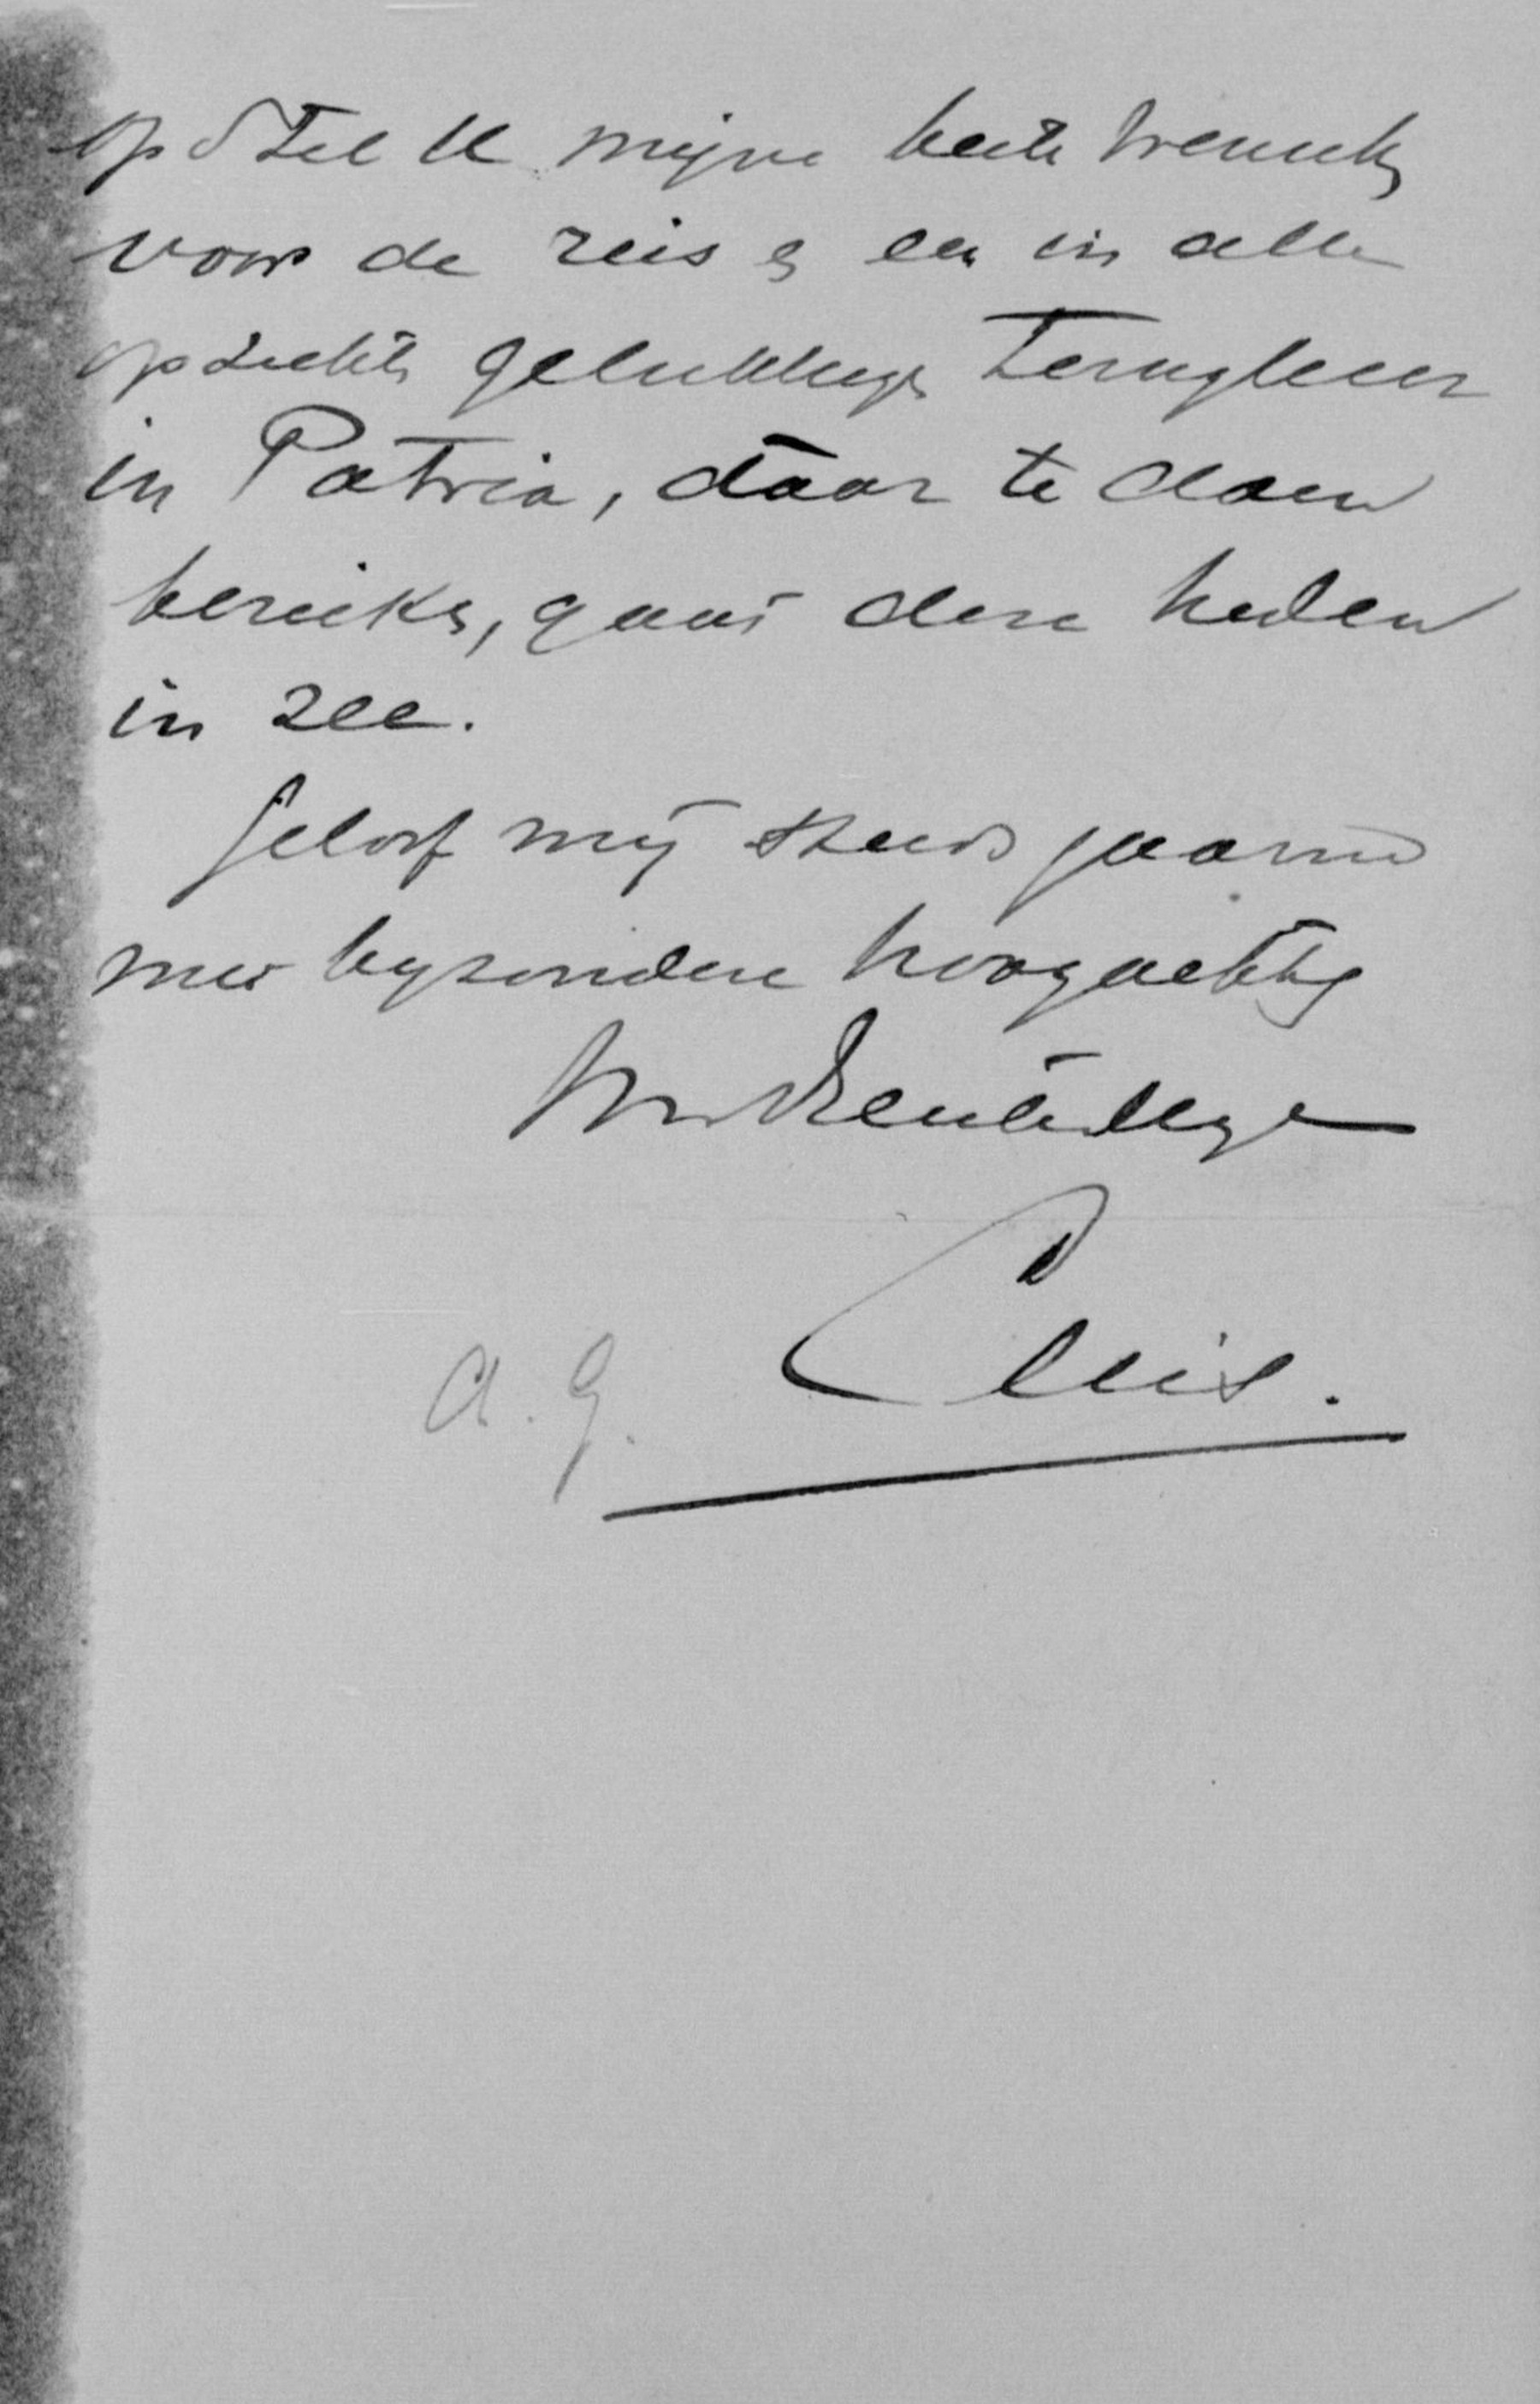 op stel U mijne beste wensch
voor de reis & een in alle
opzichte gelukkige terugkeer
in Patria, daar te doen
bereiken, gaat deze heden
in zee.
Geloof mij steeds gaarne
met byzondere hoogachtg
Uw dienstwillige
A. G. Ellis.